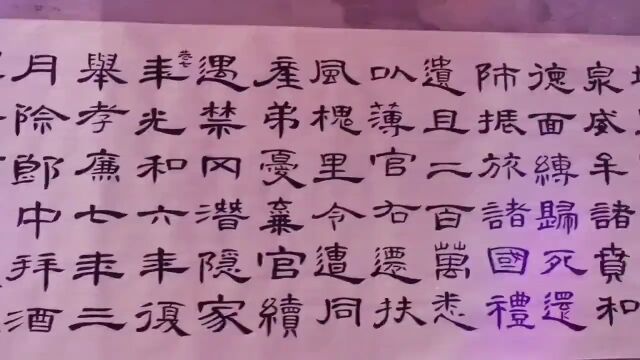 泉威牟諸賁和
德面縛歸死還
師振旅諸國禮
遺且二百萬悉
以薄官右遷扶
風槐里令遭同
產弟憂棄官續
遇禁冈潛隱家
巷七年光和六年復
舉孝廉七年三
月除郎中拜酒